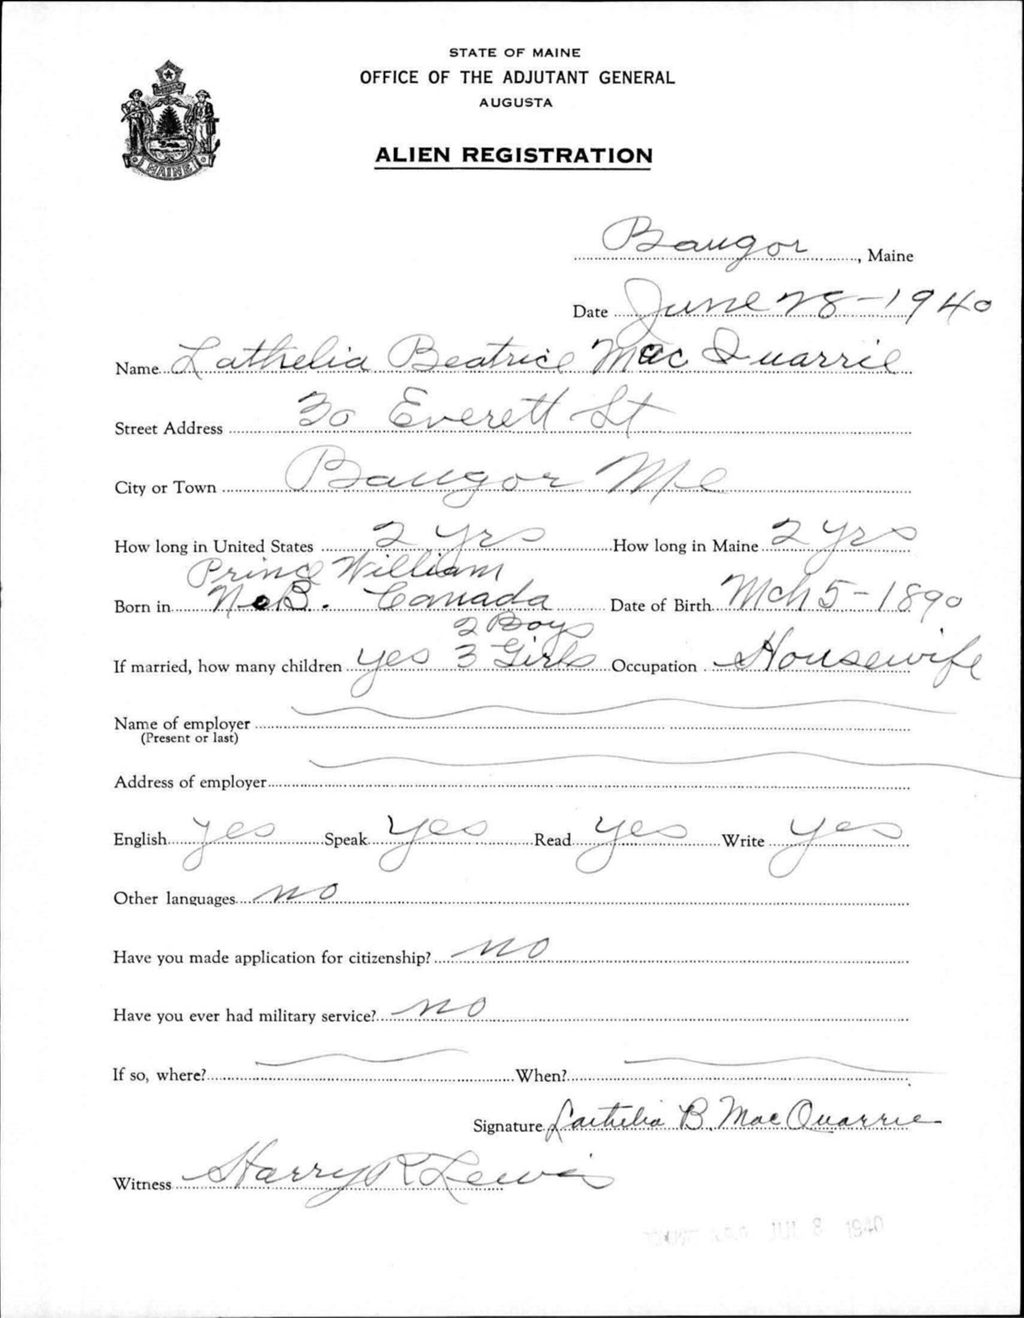 STATE OF MAINE
OFFICE OF THE ADJUTANT GENERAL
AUGUSTA
MAINE
ALIEN REGISTRATION
Bangor, Maine
Date June 28-1940
Name Lathelia Beatrice MacQuarrie
Street Address 30 Everett St
City or Town Bangor Me
How long in United States 2 yrs How long in Maine 2 yrs
Prince William
Born in N.B. Canada Date of Birth Mch 5-1890
2 Boys
If married, how many children yes 3 Girls Occupation Housewife
Name of employer
(Present or last)
Address of employer
English yes Speak yes Read yes Write yes
Other languages no
Have you made application for citizenship? no
Have you ever had military service? no
If so, where? When?
Signature Lathelia B. MacQuarrie
Witness Harry R Lewis
JUL 8 1940